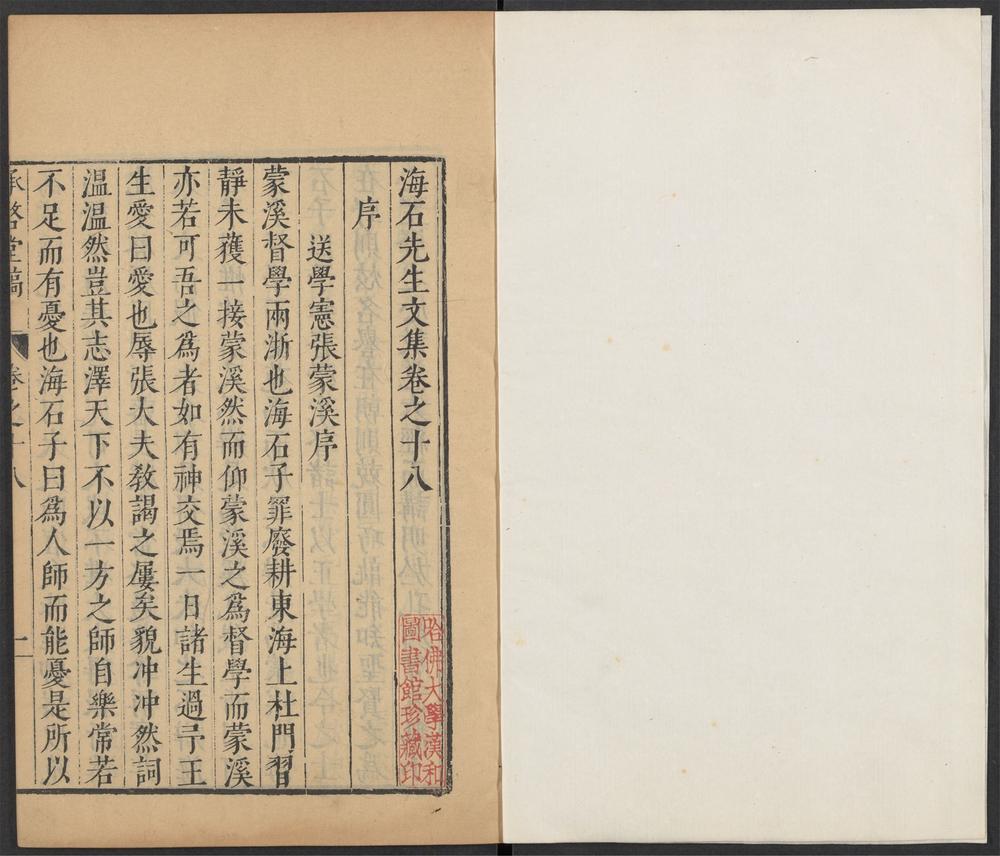 海石先生文集卷之十八
序
送學憲張蒙溪序
蒙溪督學兩浙也海石子罪廢耕東海上杜門習
靜未獲一接蒙溪然而仰蒙溪之爲督學而蒙溪
亦若可吾之爲者如有神交焉一日諸生過予王
生愛曰愛也辱張大夫敎謁之屢矣貌冲冲然詞
溫溫然豈其志澤天下不以一方之師自樂常若
不足而有憂也海石子曰爲人師而能憂是所以
承啓堂稿 卷之十八 一
哈佛大學漢和
圖書館珍藏印